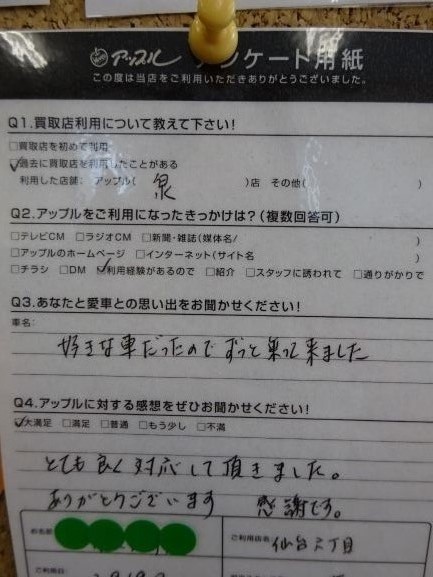 アップル アンケート用紙
この度は当店をご利用いただきありがとうございました。
Q1.買取店利用について教えて下さい!
□買取店を初めて利用
☑過去に買取店を利用したことがある
利用した店舗: アップル( 泉 )店 その他( )
Q2.アップルをご利用になったきっかけは?(複数回答可)
□テレビCM □ラジオCM □新聞・雑誌(媒体名/ )
□アップルのホームページ □インターネット(サイト名 )
□チラシ □DM ☑利用経験があるので □紹介 □スタッフに誘われて □通りがかりで
Q3.あなたと愛車との思い出をお聞かせください!
車名:
好きな車だったのでずっと乗って来ました
Q4.アップルに対する感想をぜひお聞かせください!
☑大満足 □満足 □普通 □もう少し □不満
とても良く対応して頂きました。
ありがとうございます 感謝です。
お名前 ご利用店名 仙台六丁目
ご利用日: